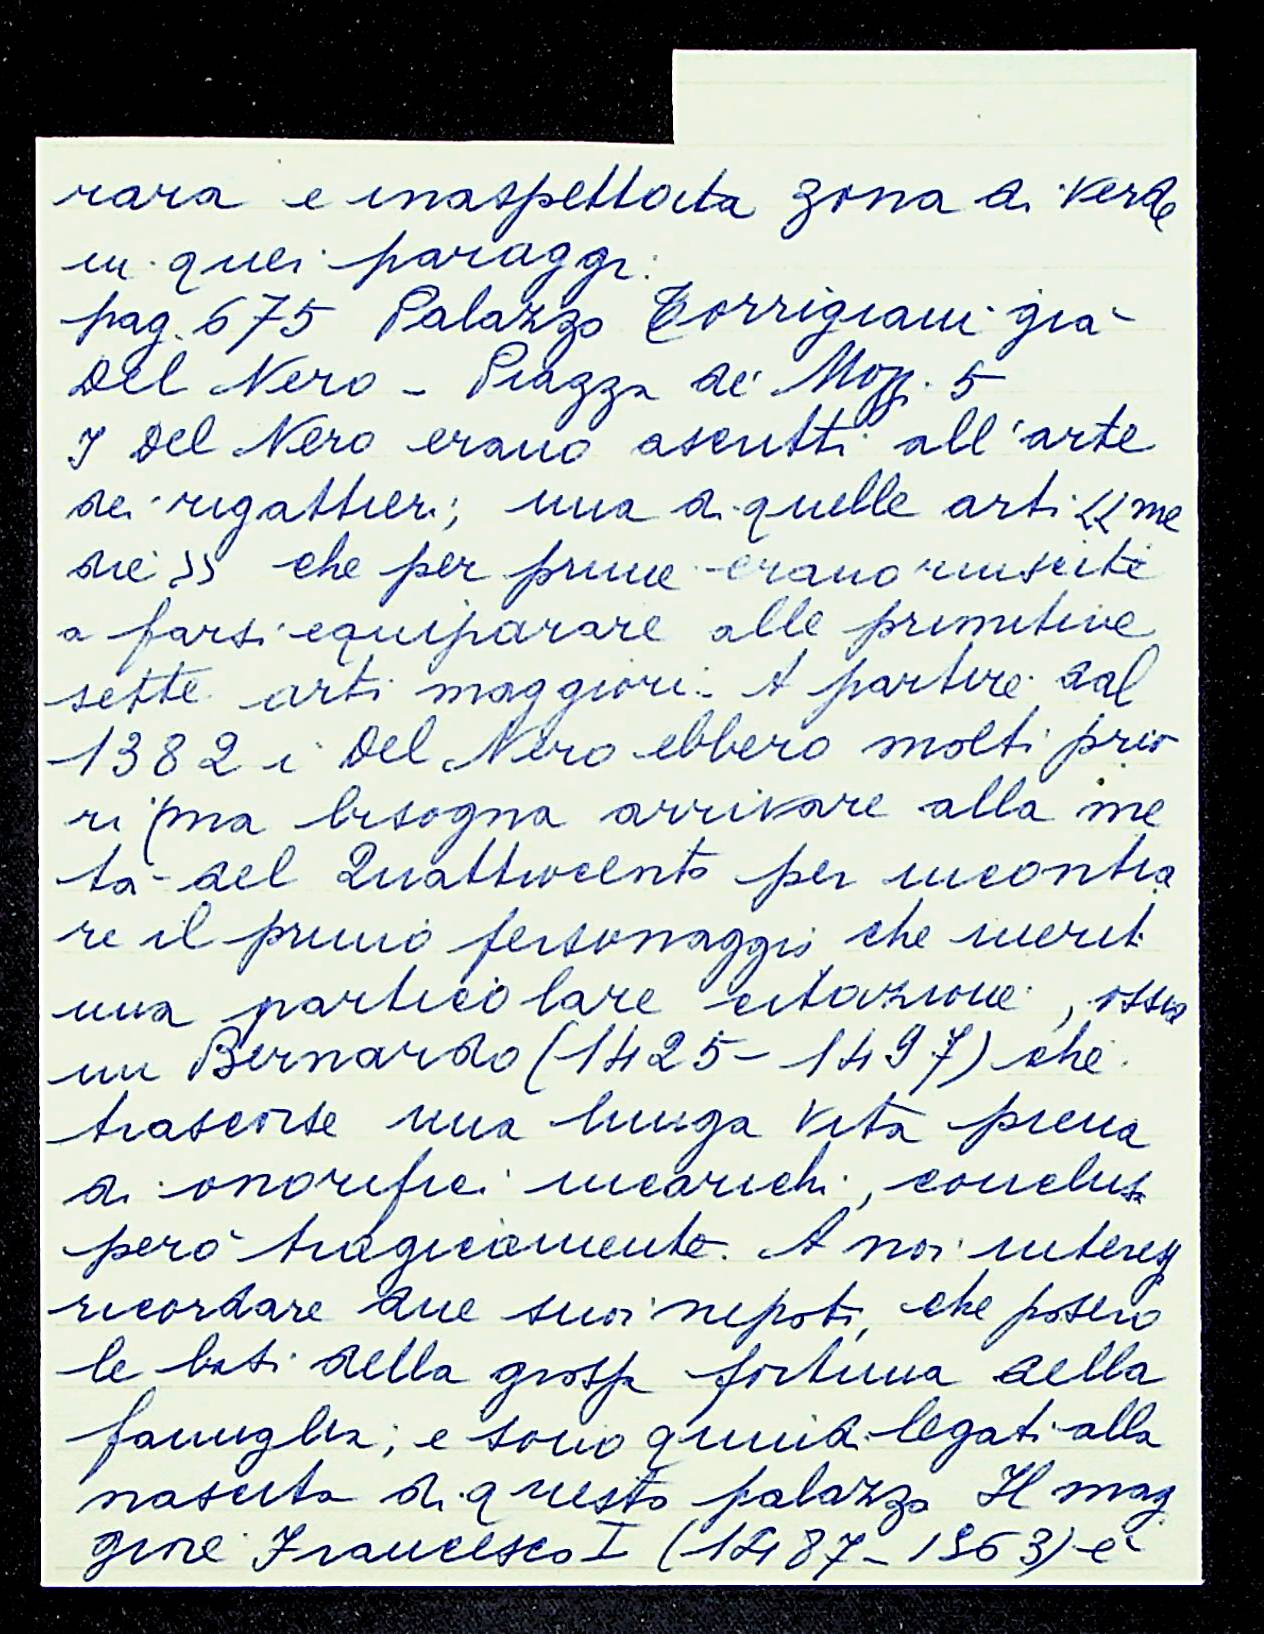 rara e inaspettata zona di verde
in quei paraggi.
pag. 675 Palazzo Torrigiani già
Del Nero - Piazza de' Mozzi 5
I Del Nero erano ascritti all'arte
dei rigattieri; una di quelle arti << me
die >> che per prime erano riuscite
a farsi equiparare alle primitive
sette arti maggiori. A partire dal
1382 i Del Nero ebbero molti prio
ri (ma bisogna arrivare alla me
tà del Quattrocento per incontra
re il primo personaggio che meriti
una particolare citazione, ossia
un Bernardo (1425-1497) che
trascorse una lunga vita piena
di onorifici incarichi, conclusa
però tragicamente. A noi interessa
ricordare due suoi nipoti, che posero
le basi della grossa fortuna della
famiglia; e sono quindi legati alla
nascita di questo palazzo Il mag
giore Francesco I (1487-1563) è